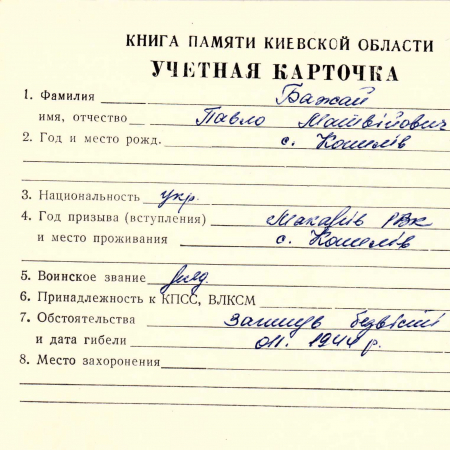 КНИГА ПАМЯТИ КИЕВСКОЙ ОБЛАСТИ
УЧЕТНАЯ КАРТОЧКА
1. Фамилия Бажай
имя, отчество Павло Матвійович
2. Год и место рожд. с. Копилів
3. Национальность укр.
4. Год призыва (вступления) Макарів РВК
и место проживания с. Копилів
5. Воинское звание ряд.
6. Принадлежность к КПСС, ВЛКСМ
7. Обстоятельства Загинув безвісті
и дата гибели 01. 1944 р.
8. Место захоронения.